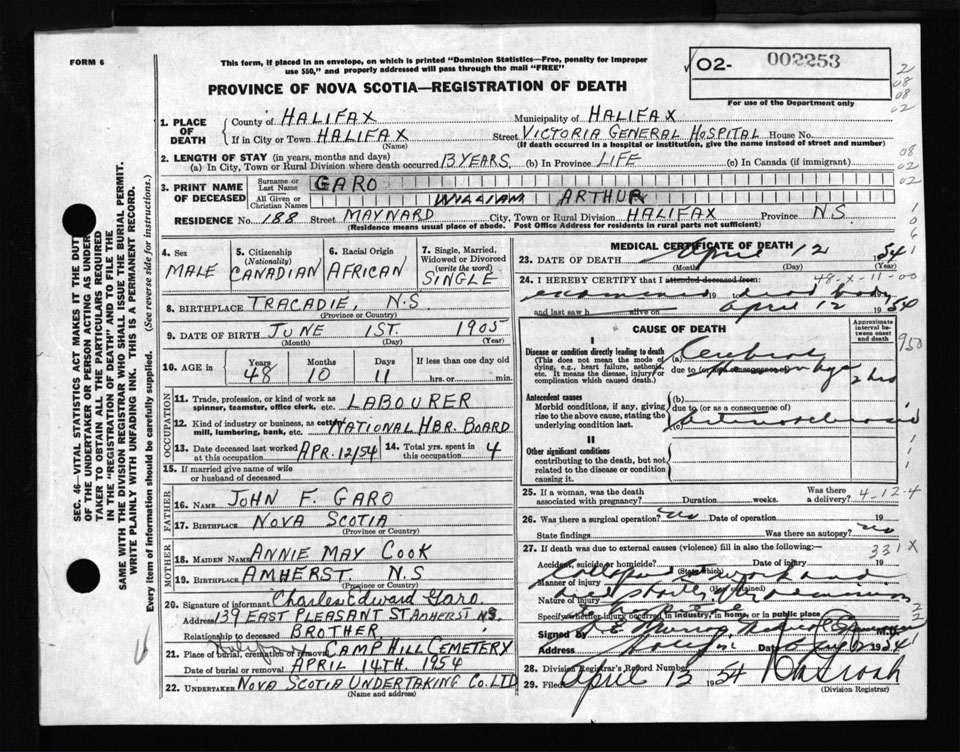 FORM 6
This form, if placed in an envelope, on which is printed "Dominion Statistics—Free, penalty for improper
use $50," and properly addressed will pass through the mail "FREE"
PROVINCE OF NOVA SCOTIA—REGISTRATION OF DEATH
O2- 002253
For use of the Department only
2
08
08
02
08
02
02
1. PLACE OF DEATH
County of HALIFAX Municipality of HALIFAX
If in City or Town HALIFAX Street VICTORIA GENERAL HOSPITAL House No.
(Name) (If death occurred in a hospital or institution, give the name instead of street and number)
2. LENGTH OF STAY (in years, months and days)
(a) In City, Town or Rural Division where death occurred 13 YEARS (b) In Province LIFE (c) In Canada (if immigrant)
3. PRINT NAME OF DECEASED
Surname or Last Name GARO
All Given or Christian Names WILLIAM ARTHUR
RESIDENCE No. 188 Street MAYNARD City, Town or Rural Division HALIFAX Province N.S
(Residence means usual place of abode. Post Office Address for residents in rural parts not sufficient)
4. Sex MALE
5. Citizenship (Nationality) CANADIAN
6. Racial Origin AFRICAN
7. Single, Married, Widowed or Divorced (write the word) SINGLE
8. BIRTHPLACE TRACADIE, N.S
(Province or Country)
9. DATE OF BIRTH JUNE 1ST. 1905
(Month) (Day) (Year)
10. AGE in Years 48 Months 10 Days 11 If less than one day old
hrs. or min.
OCCUPATION
11. Trade, profession, or kind of work as
spinner, teamster, office clerk, etc. LABOURER
12. Kind of industry or business, as cotton
mill, lumbering, bank, etc. NATIONAL HBR. BOARD
13. Date deceased last worked at this occupation APR. 12/54 14. Total yrs. spent in this occupation 4
15. If married give name of wife
or husband of deceased
FATHER
16. NAME JOHN F. GARO
17. BIRTHPLACE NOVA SCOTIA
(Province or Country)
MOTHER
18. MAIDEN NAME ANNIE MAY COOK
19. BIRTHPLACE AMHERST, N.S
(Province or Country)
20. Signature of informant Charles Edward Garo.
Address 139 EAST PLEASANT ST AMHERST N.S.
Relationship to deceased BROTHER
21. Place of burial, cremation or removal CAMP HILL CEMETERY
Date of burial or removal APRIL 14TH. 1954
22. UNDERTAKER NOVA SCOTIA UNDERTAKING CO. LTD
(Name and address)
MEDICAL CERTIFICATE OF DEATH
23. DATE OF DEATH April 12 1954
(Month) (Day)
24. I HEREBY CERTIFY that I attended deceased from: 48-X-11-00
examined 19 to dead body
and last saw h alive on April 12 1954
CAUSE OF DEATH
Approximate interval between onset and death
I
Disease or condition directly leading to death (a) Cerebral
(This does not mean the mode of
dying, e.g., heart failure, asthenia,
etc. It means the disease, injury or
complication which caused death.)
due to (or as a consequence of) 2 hrs
950
Antecedent causes
Morbid conditions, if any, giving
rise to the above cause, stating the
underlying condition last.
(b)
due to (or as a consequence of)
(c) Arteriosclerosis
II
Other significant conditions
contributing to the death, but not
related to the disease or condition
causing it.
25. If a woman, was the death
associated with pregnancy? Duration weeks. Was there a delivery? 4-12-4
26. Was there a surgical operation? no Date of operation 19
State findings Was there an autopsy? no
27. If death was due to external causes (violence) fill in also the following:— 331X
Accident, suicide or homicide? Date of injury 19
(State which)
Manner of injury collapsed at work and
Nature of injury died shortly after admission
Specify whether injury occurred in industry, in home, or in public place to hospital
Signed by M.D.
Address Halifax Date 1954
28. Division Registrar's Record Number
29. Filed April 13 1954
(Division Registrar)
SEC. 46—VITAL STATISTICS ACT MAKES IT THE DUTY
OF THE UNDERTAKER OR PERSON ACTING AS UNDER-
TAKER TO OBTAIN ALL THE PARTICULARS REQUIRED
IN THE "REGISTRATION OF DEATH" AND TO FILE THE
SAME WITH THE DIVISION REGISTRAR WHO SHALL ISSUE THE BURIAL PERMIT.
WRITE PLAINLY WITH UNFADING INK. THIS IS A PERMANENT RECORD.
Every item of information should be carefully supplied. (See reverse side for instructions.)